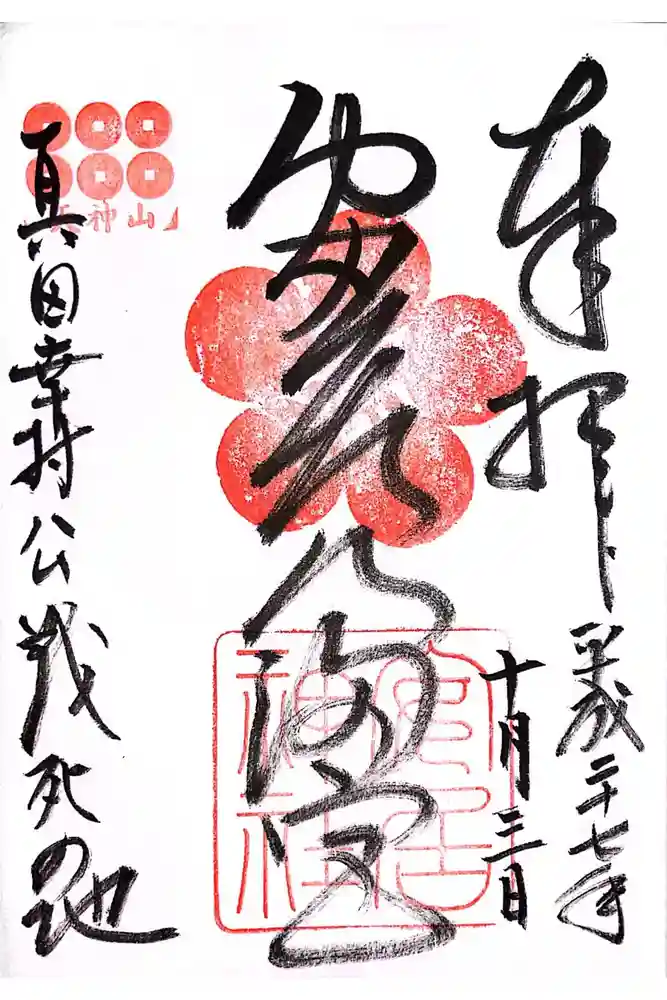 奉拝
平成二十七年
十月三日
安居天満宮
安居
神社
真田幸村公戦死の地
神山